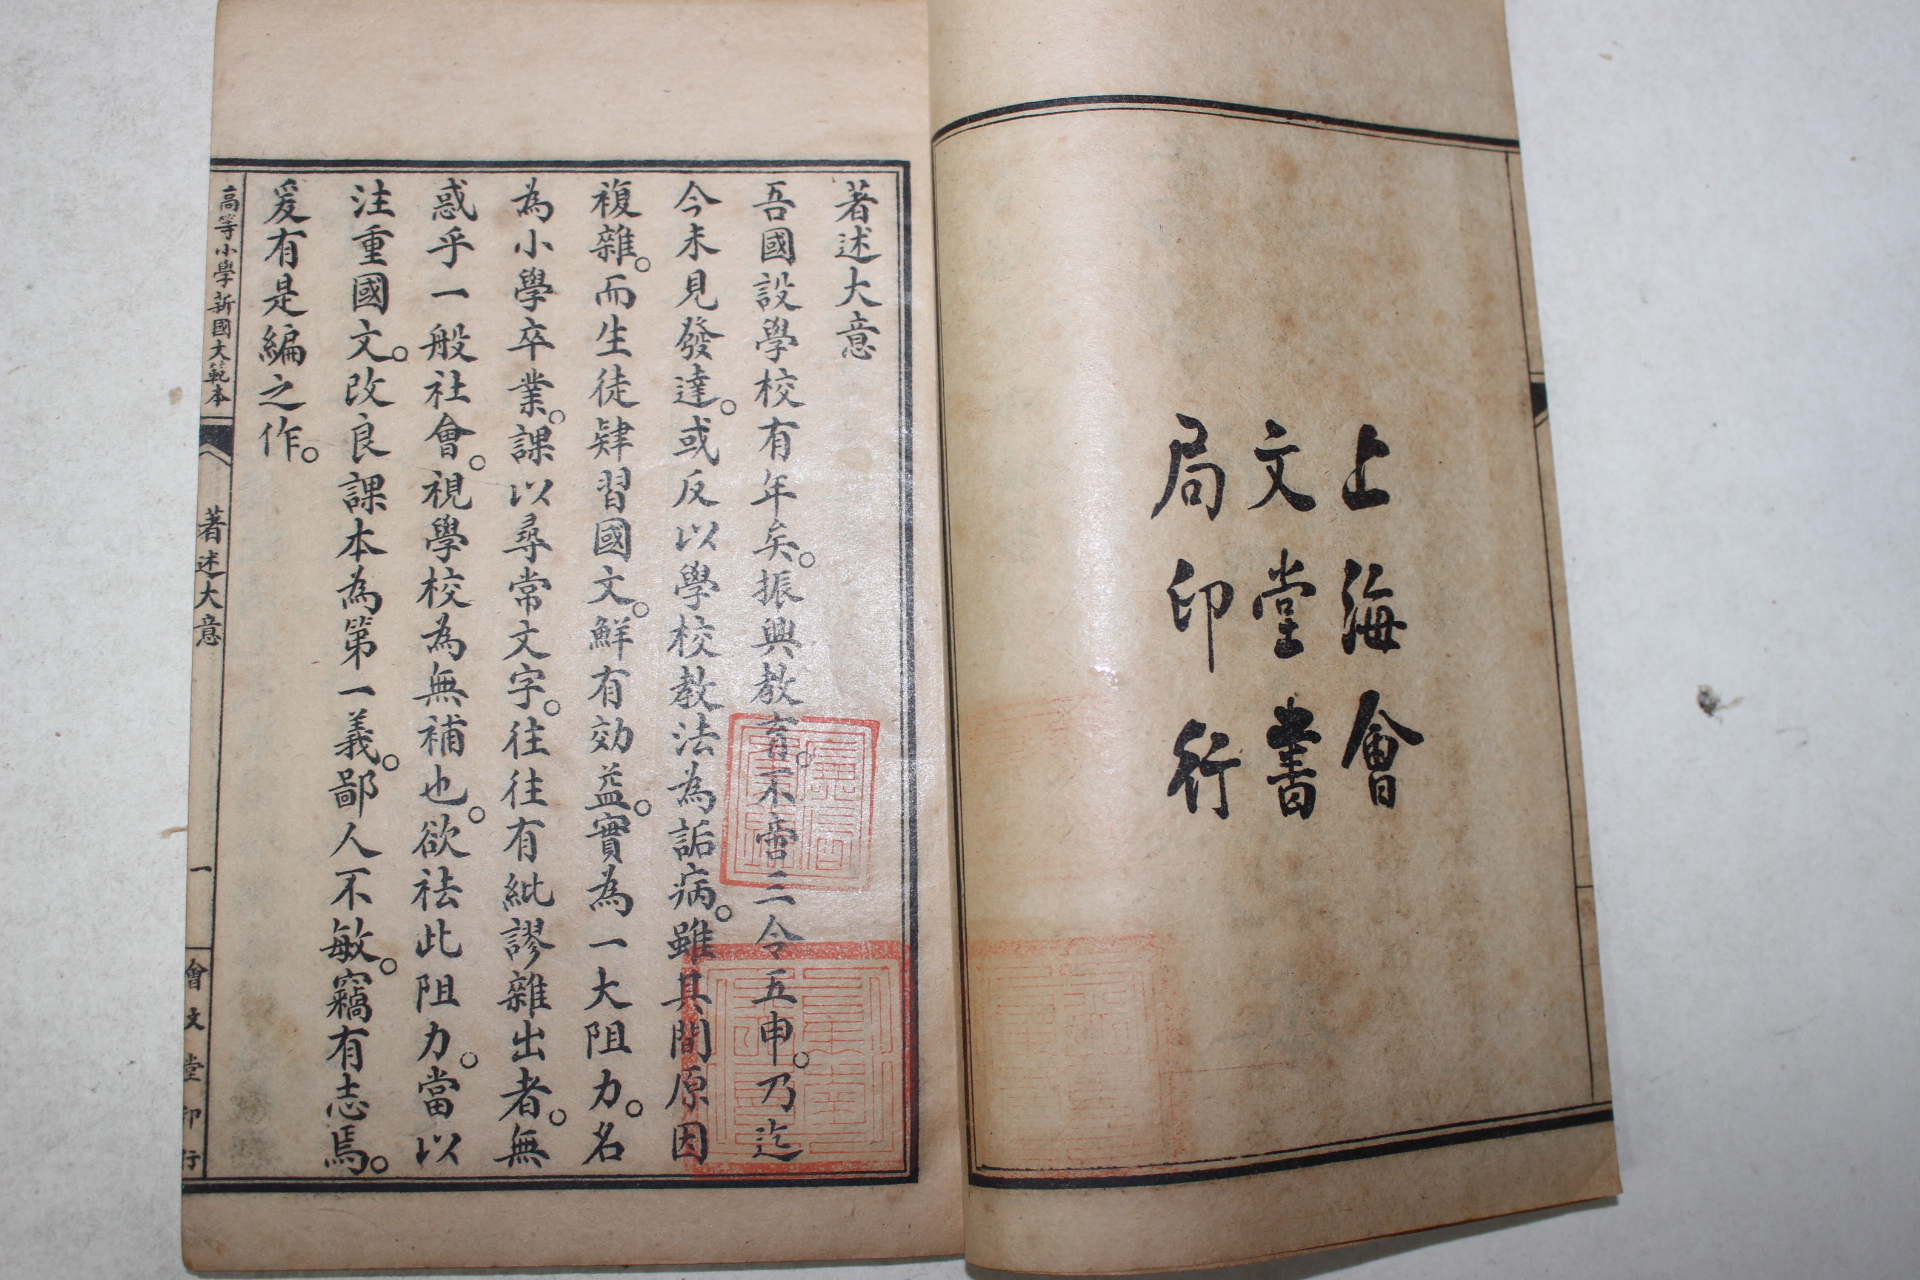 上海會
文堂書
局印行
著述大意
吾國設學校有年矣。振興教育。不啻三令五申。乃迄
今未見發達。或反以學校教法為詬病。雖其間原因
複雜。而生徒肄習國文。鮮有効益。實為一大阻力。名
為小學卒業。課以尋常文字。往往有紕謬雜出者。無
惑乎一般社會。視學校為無補也。欲祛此阻力。當以
注重國文。改良課本為第一義。鄙人不敏。竊有志焉。
爰有是編之作。
高等小學新國文範本
著述大意
一
會文堂印行